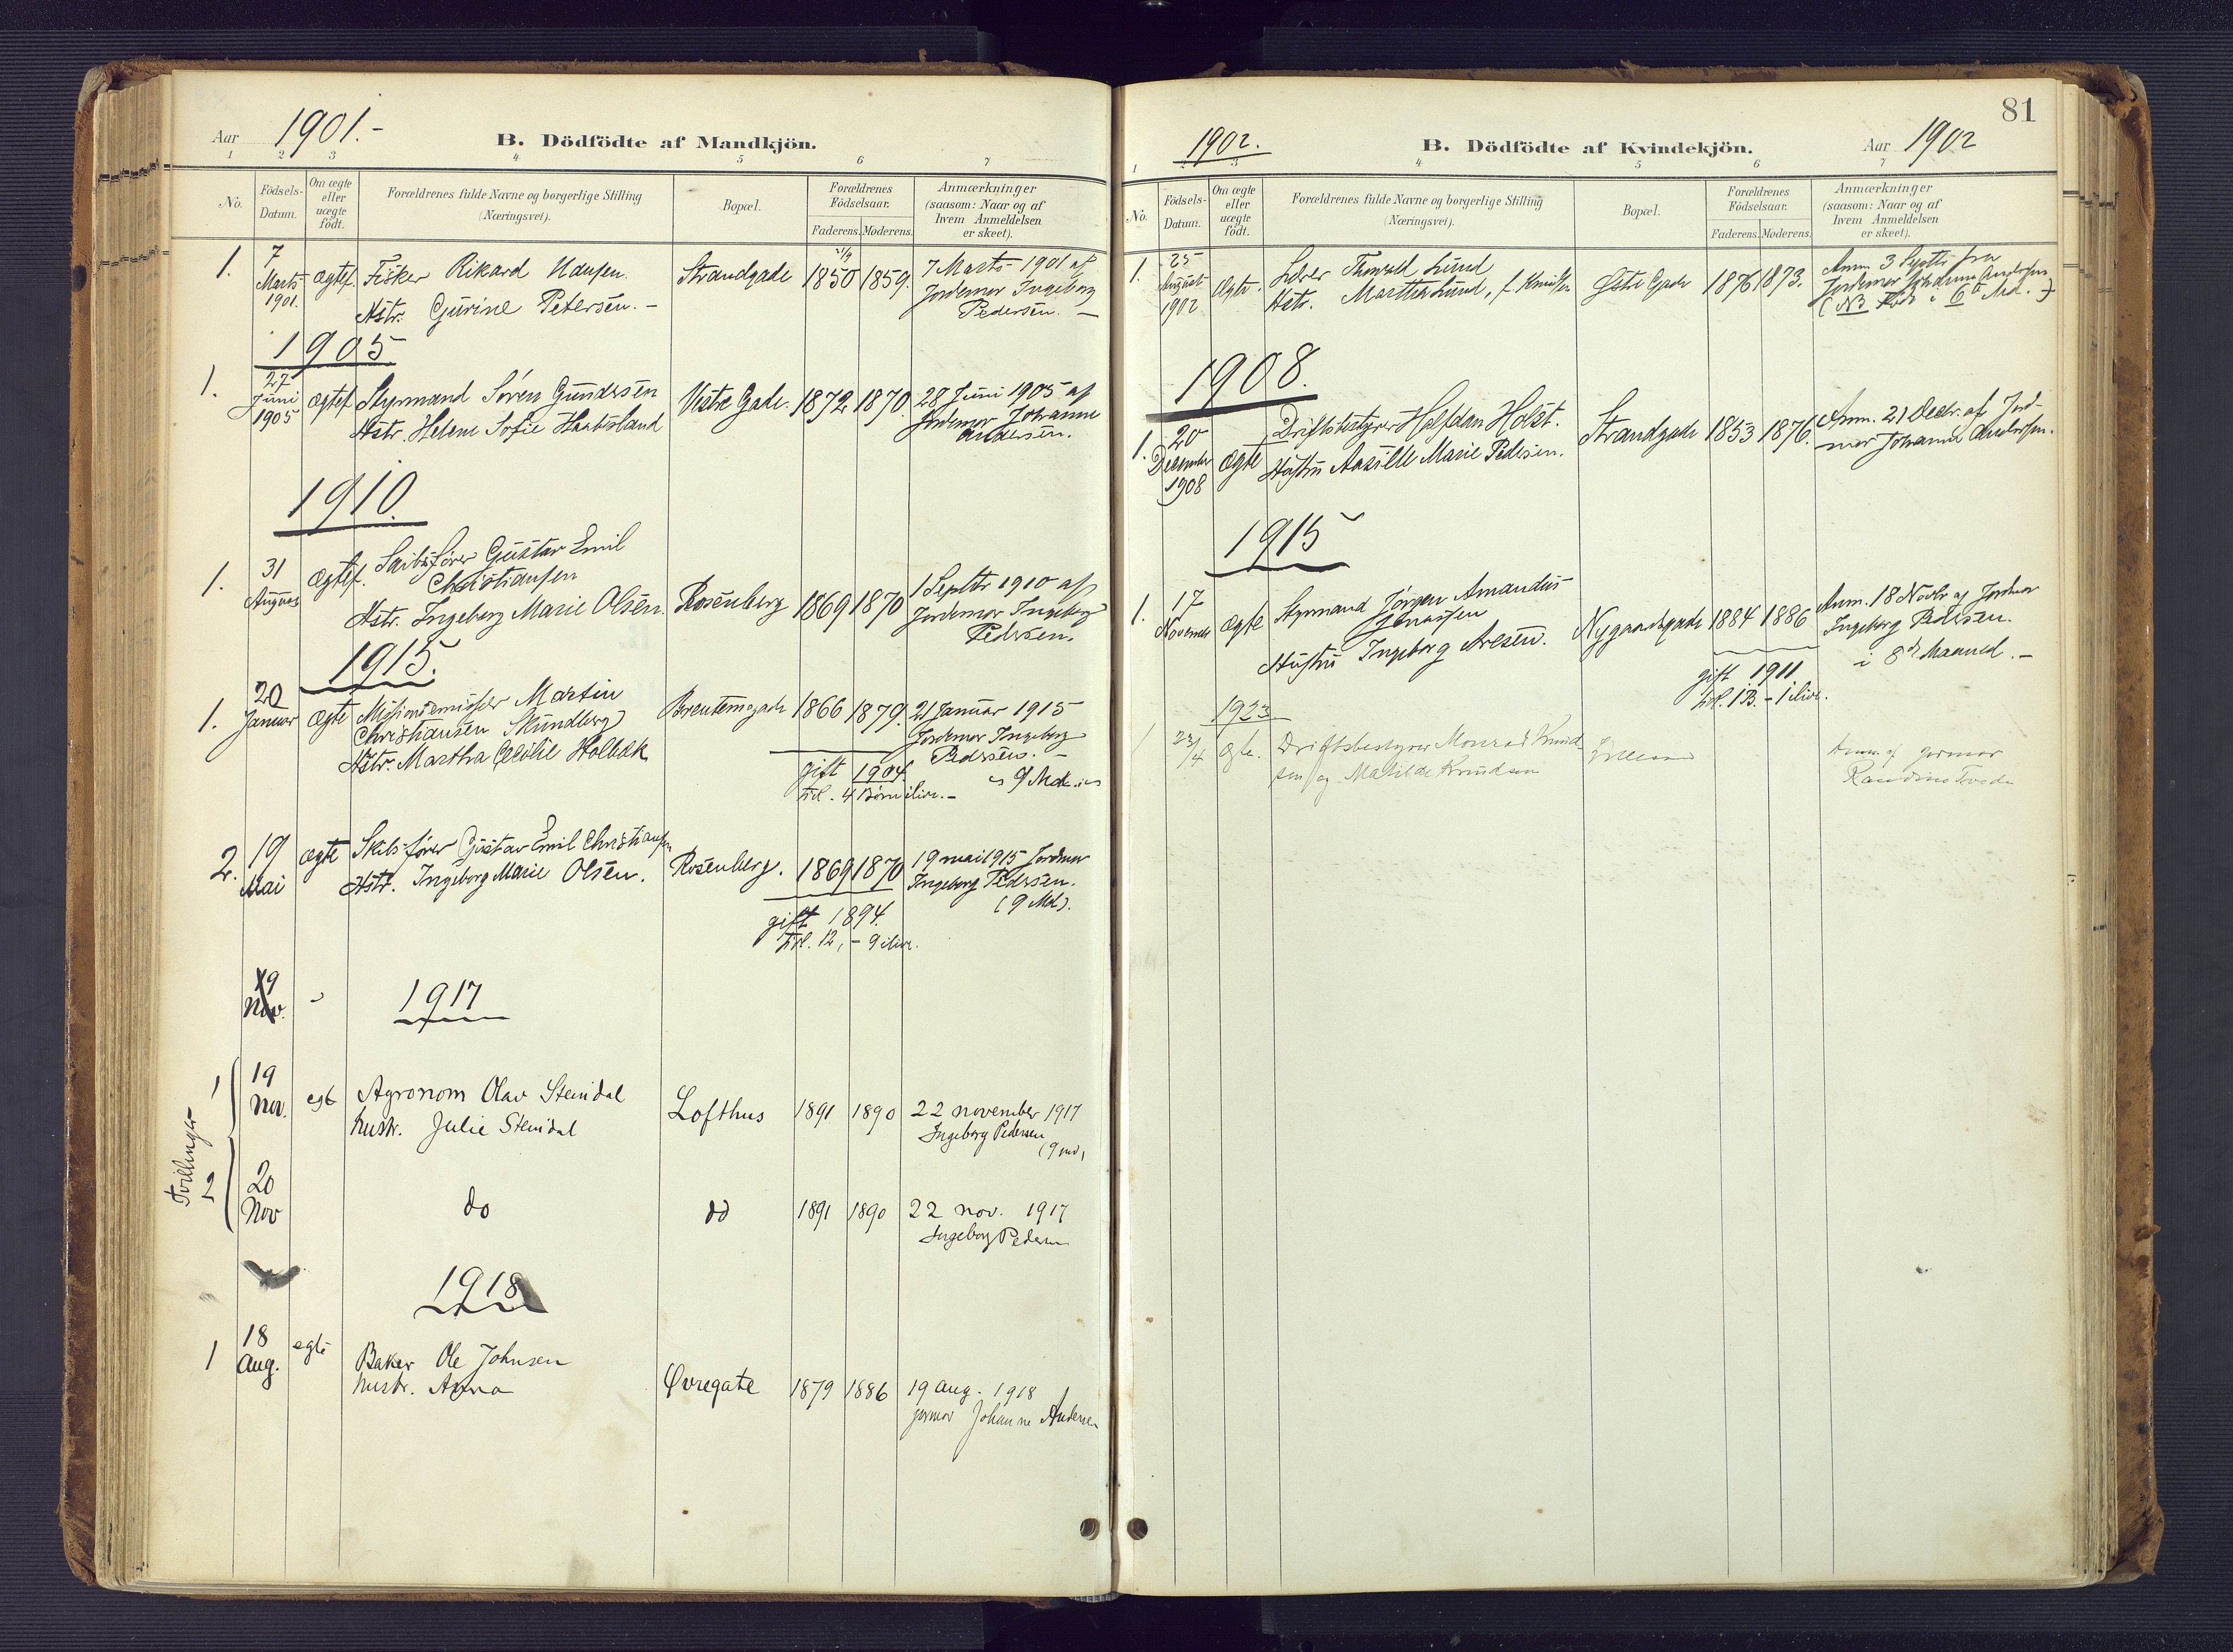 Aar 1901.-
B. Dödfödte af Mandkjön.
1 2 3 4 5 6 7
No.
Födsels-
Datum.
Om ægte
eller
uægte
födt.
Forældrenes fulde Navne og borgerlige Stilling
(Næringsvei).
Bopæl.
Forældrenes
Födselsaar.
Faderens. Moderens.
Anmærkninger
(saasom: Naar og af
hvem Anmeldelsen
er skeet).
1. 7 Marts 1901. ægtef. Fisker Rikard Hansen. Strandgade 1850 1859. 7 Marts 1901 af
Hstr. Gurine Petersen. - Jordemor Ingeborg
Pedersen. -
1905
1. 27 Juni 1905 ægtef. Styrmand Sören Gundersen Vestre Gade. 1872 1870. 28 Juni 1905 af
Hstr. Helene Sofie Haabesland Jordemor Johanne
Andersen.
1910.
1. 31 August ægtef. Skibsfører Gustav Emil
Christiansen
Hstr. Ingeborg Marie Olsen. Rosenberg 1869 1870 1 Septbr 1910 af
Jordemor Ingeborg
Pedersen.
1915.
1. 20 Januar ægte Misjonsemissær Martin
Christiansen Skundberg
Hstr. Martha Cecilie Holbæk 1866 1879. 21 Januar 1915
Jordemor Ingeborg
Pedersen. -
gift 1904.
4 Børn ilive. - 9 Md.
2. 19 Mai ægte Skibsfører Gustav Emil Christiansen
Hstr. Ingeborg Marie Olsen. Rosenberg. 1869 1870 19 mai 1915 Jordmor
Ingeborg Pedersen.
(9 Md).
gift 1894.
12, - 9 ilive.
19
Nov.
1917
Tvillinger
1 19 Nov. egt Agronom Olav Steindal Lofthus 1891 1890 22 november 1917
hustr. Julie Steindal Ingeborg Pedersen
(9 md)
2 20 Nov do do 1891 1890 22 nov. 1917
Ingeborg Pedersen
1918
1 18 Aug. egte Baker Ole Johnsen Øvregate 1879 1886 19 aug. 1918
hustr. Anna jormor Johanne Andersen
81
1902.
B. Dödfödte af Kvindekjön.
Aar 1902
1 3 4 5 6 7
No.
Födsels-
Datum.
Om ægte
eller
uægte
födt.
Forældrenes fulde Navne og borgerlige Stilling
(Næringsvei).
Bopæl.
Forældrenes
Födselsaar.
Faderens. Moderens.
Anmærkninger
(saasom: Naar og af
hvem Anmeldelsen
er skeet).
1. 25 August 1902 Ægte. Lærer Thorvald Lund Østre Gade 1876 1873. Anm. 3 Septbr fra
Hstr. Martha Lund, f. Knutsen Jordemor Johanne Andersen
(NB Født i 6te Md.)
1908.
1. 20 December 1908 ægte Driftsbestyrer Halfdan Holst. Strandgade 1853 1876. Anm. 21 Decbr. af Jord-
Hustru Aasille Marie Pedersen. mor Johanne Andersen.
1915
1. 17 November ægte Styrmand Jörgen Amandus
Jonassen Nygaardsgade 1884 1886 Anm. 18 Novbr af Jordmor
Hustru Ingeborg Aresen. Ingeborg Pedersen.
i 8de Maaned. -
gift 1911
1 B. - 1 ilive.
1923
1 23/4 egte. Driftsbestyrer Monrad Knud
sen og Matilde Knudsen Anm. af jormor
Randine Tveda